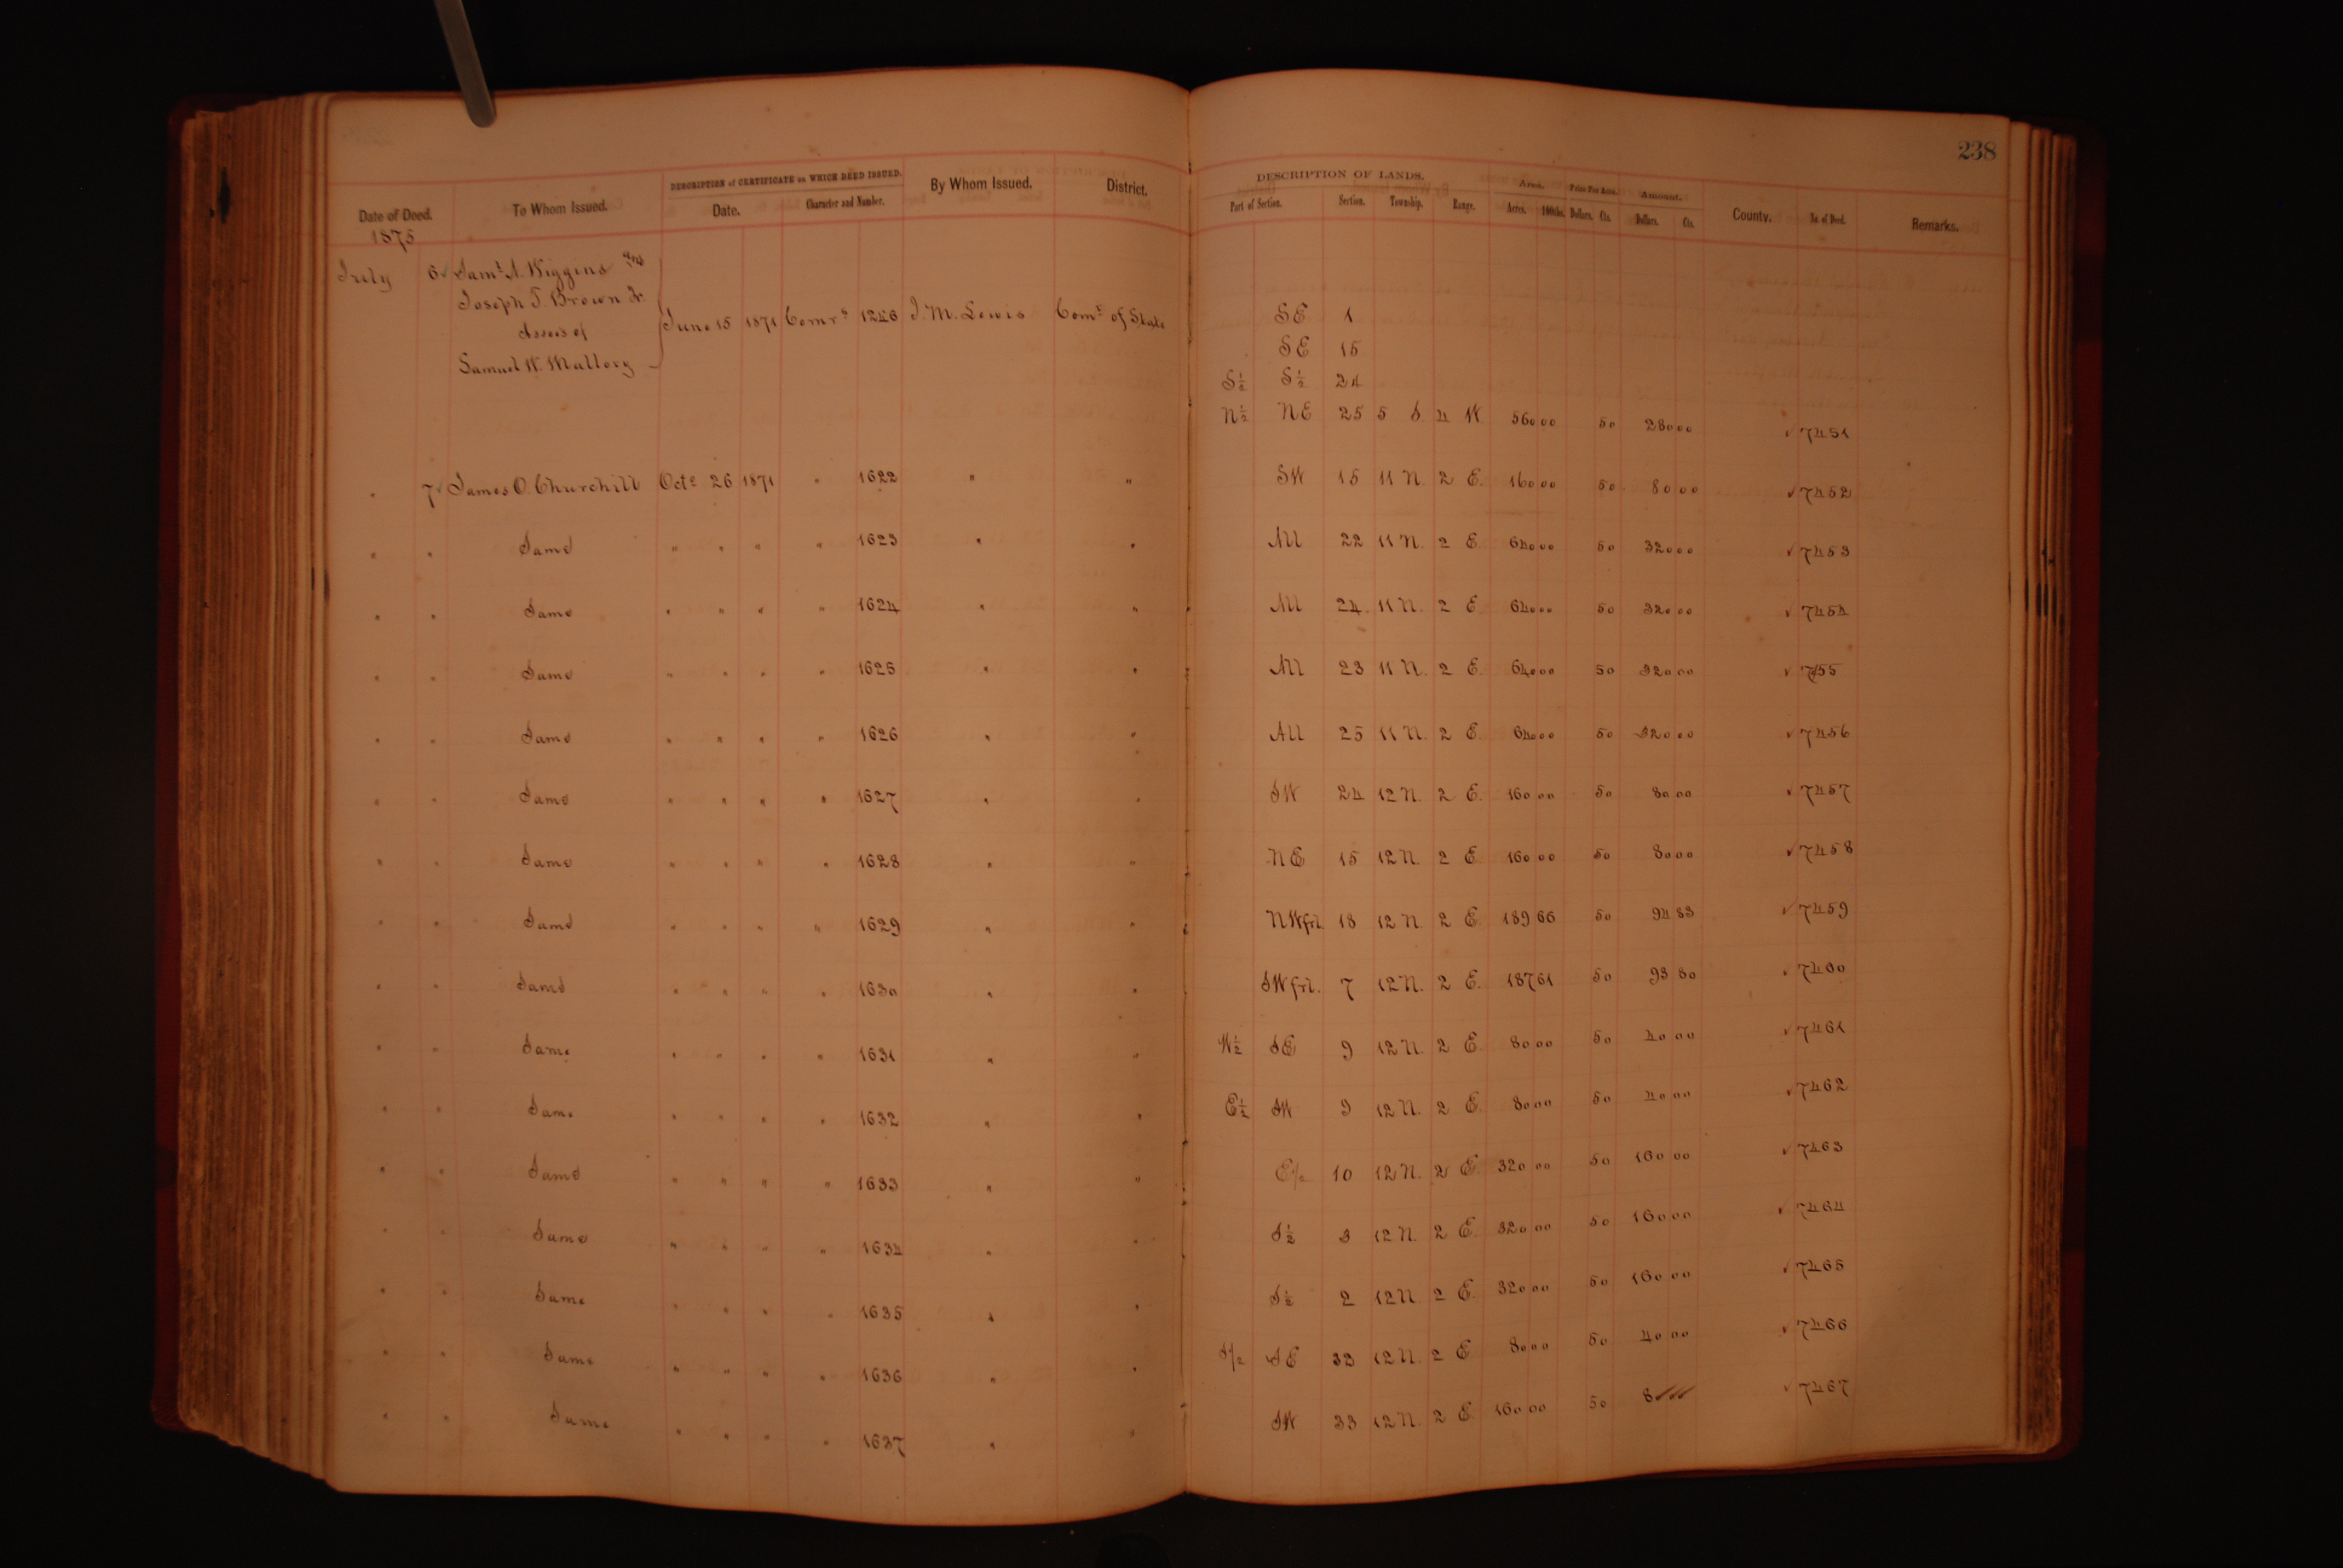 238
DESCRIPTION of CERTIFICATE on WHICH DEED ISSUED. DESCRIPTION OF LANDS.
Date of Deed. To Whom Issued. Date. Character and Number. By Whom Issued. District. Part of Section. Section. Township. Range. Area. Acres. 100ths. Price Per Acre. Dollars. Cts. Amount. Dollars. Cts. County. No. of Deed. Remarks.
1875
July 6 ✓ Saml. A. Wiggins and
Joseph T. Brown Jr.
Assees of
Samuel W. Mallory
June 15 1871 Comrs 1226 J. M. Lewis Comr of State SE 1
SE 15
S½ S½ 24
N½ NE 25 5 S 4 W. 560 00 50 280 00 ✓ 7451
" 7 ✓ James O. Churchill Octr 26 1871 " 1622 " " SW 15 11 N. 2 E. 160 00 50 80 00 ✓ 7452
" " Same " " " " 1623 " " All 22 11 N. 2 E. 640 00 50 320 00 ✓ 7453
" " Same " " " " 1624 " " All 24 11 N. 2 E. 640 00 50 320 00 ✓ 7454
" " Same " " " " 1625 " " All 23 11 N. 2 E. 640 00 50 320 00 ✓ 7455
" " Same " " " " 1626 " " All 25 11 N. 2 E. 640 00 50 320 00 ✓ 7456
" " Same " " " " 1627 " " SW 24 12 N. 2 E. 160 00 50 80 00 ✓ 7457
" " Same " " " " 1628 " " NE 15 12 N. 2 E. 160 00 50 80 00 ✓ 7458
" " Same " " " " 1629 " " NW frl. 18 12 N. 2 E. 189 66 50 94 83 ✓ 7459
" " Same " " " " 1630 " " SW frl. 7 12 N. 2 E. 187 61 50 93 80 ✓ 7460
" " Same " " " " 1631 " " W½ SE 9 12 N. 2 E. 80 00 50 40 00 ✓ 7461
" " Same " " " " 1632 " " E½ SW 9 12 N. 2 E. 80 00 50 40 00 ✓ 7462
" " Same " " " " 1633 " " E/2 10 12 N. 2 E. 320 00 50 160 00 ✓ 7463
" " Same " " " " 1634 " " S½ 3 12 N. 2 E. 320 00 50 160 00 ✓ 7464
" " Same " " " " 1635 " " S½ 2 12 N. 2 E. 320 00 50 160 00 ✓ 7465
" " Same " " " " 1636 " " S/2 SE 33 12 N. 2 E. 80 00 50 40 00 ✓ 7466
" " Same " " " " 1637 " " SW 33 12 N. 2 E. 160 00 50 ✓ 7467